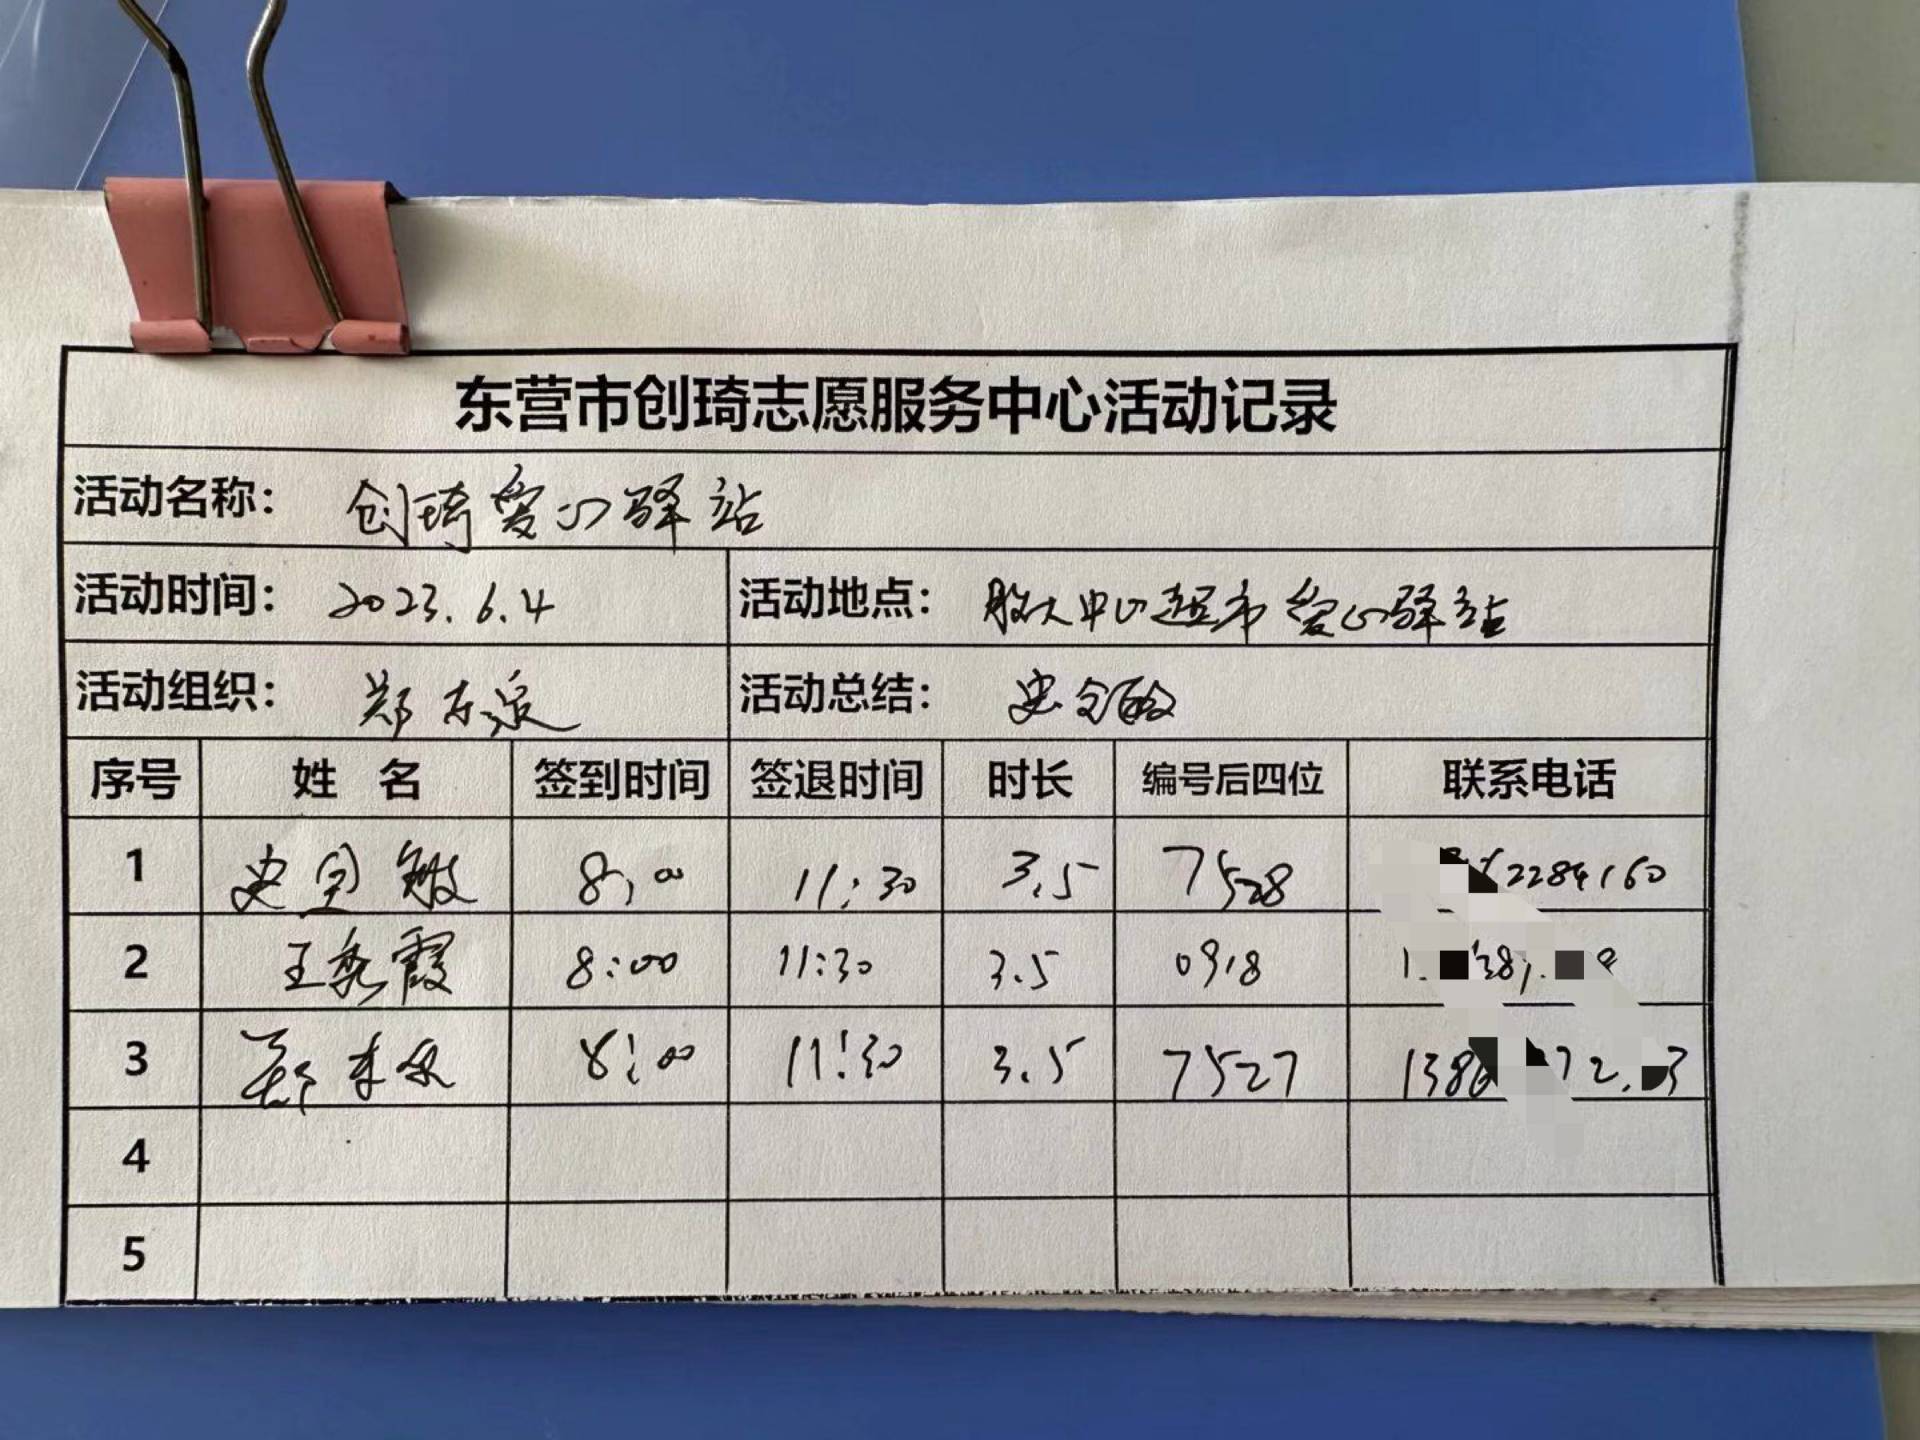 东营市创琦志愿服务中心活动记录
活动名称: 创琦爱心驿站
活动时间: 2023.6.4 活动地点: 胶大中心超市爱心驿站
活动组织: 郑东泉 活动总结: 史国敏
序号 姓名 签到时间 签退时间 时长 编号后四位 联系电话
1 史国敏 8:00 11:30 3.5 7528 2284160
2 王秀霞 8:00 11:30 3.5 0918
3 郑东泉 8:00 11:30 3.5 7527 138
4
5